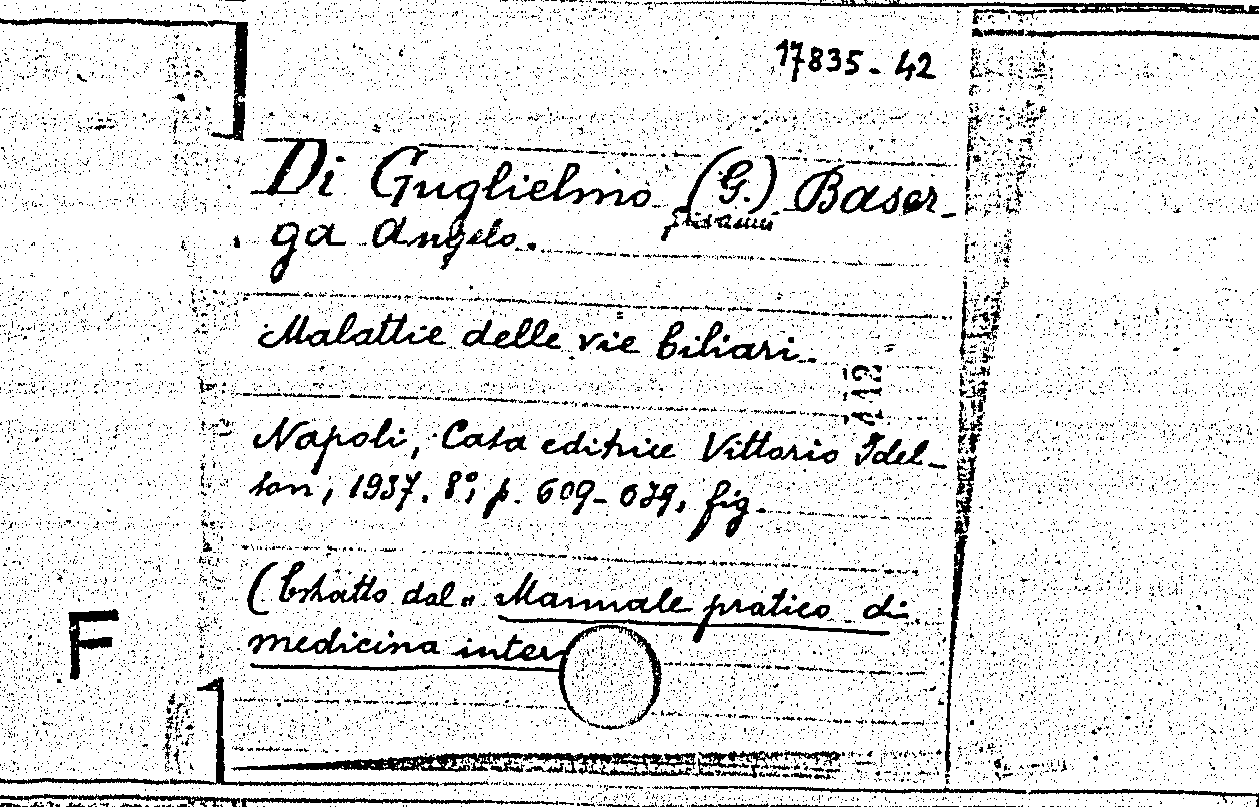 17835-42
Di Guglielmo (G.) Baser-
Giovanni
ga Angelo.
Malattie delle vie biliari.
112
Napoli, Casa editrice Vittorio Idel-
son, 1937. 8°, p. 609-679, fig.
(Estratto dal „ Manuale pratico di
medicina inter
F